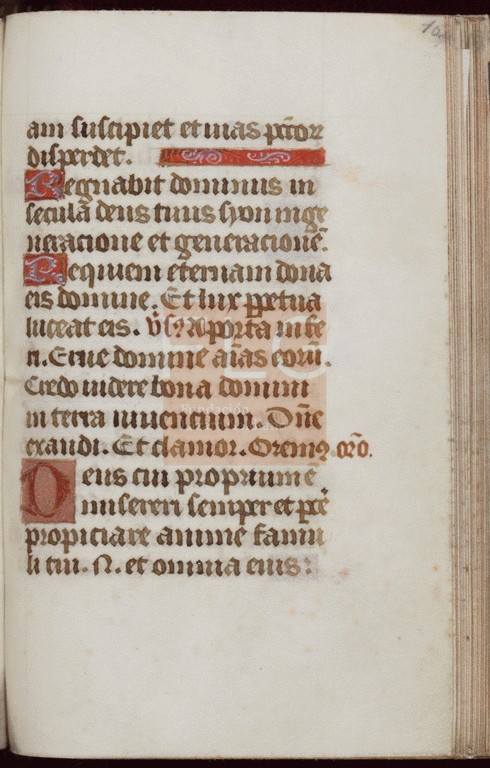 am suscipiet et uias pc̄c̄orꝝ
disperdet.
Regnabit dominus in
secula deus tuus syon in ge
neracione et generacionē.
Requiem eternam dona
eis domine. Et lux ꝑpetua
luceat eis. v̄s9 A porta infe
ri. Erue domine aīas eorū.
Credo videre bona domini
in terra viuencium. Dn̄e
exaudi. Et clamor. Orem9 or̄o.
Deus cui propriumē
misereri semper et ꝑc̄e
propiciare anime famu
li tui. N. et omnia eius: